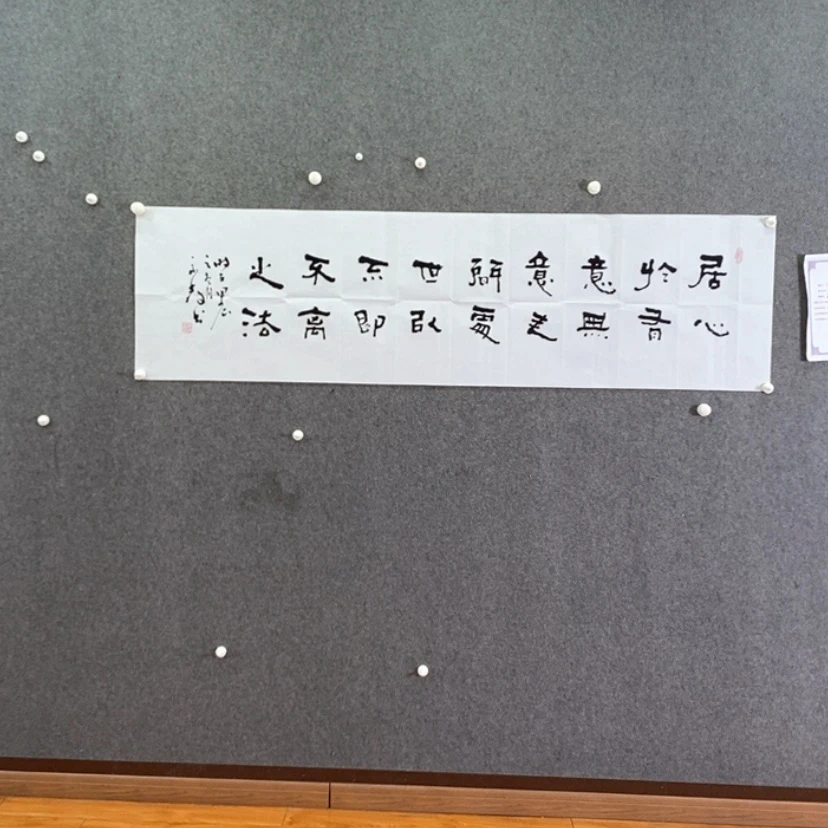 居心
於有
意無
意之
間處
世以
不即
不離
之法